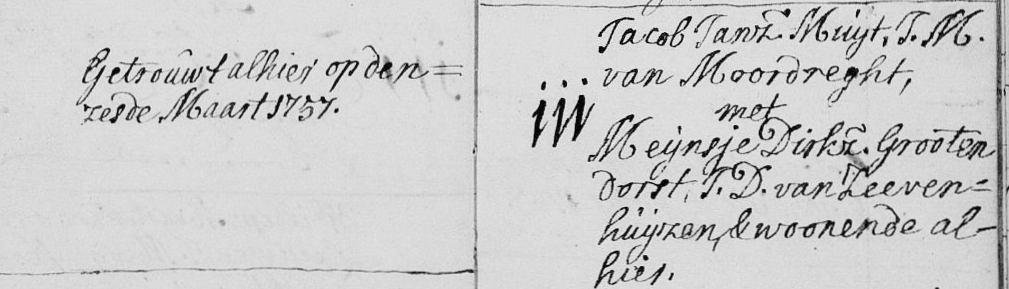 Getrouwt alhier op den =
zesde Maart 1757.
iij
Jacob Jansz. Muijt, J. M.
van Moordreght,
met
Meijnsje Dirksz. Grooten
dorst, J. D. van Zeeven=
huijzen, & woonende al-
hier.